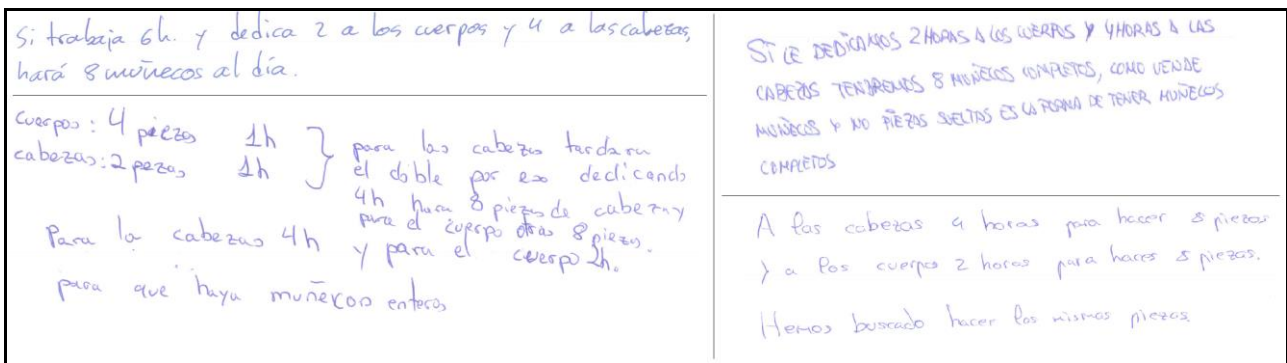 Si trabaja 6h. y dedica 2 a los cuerpos y 4 a las cabezas,
hará 8 muñecos al día.
cuerpos: 4 piezas 1h
cabezas: 2 pezas 1h
para las cabezas tardara
el doble por eso dedicando
4h hara 8 piezas de cabeza y
para el cuerpo otras 8 piezas.
Para la cabezas 4h y para el cuerpo 2h.
para que haya muñecos enteros
SI LE DEDICAMOS 2 HORAS A LOS CUERPOS Y 4 HORAS A LAS
CABEZAS TENDREMOS 8 MUÑECOS COMPLETOS, COMO VENDE
MUÑECOS Y NO PIEZAS SUELTAS ES LA FORMA DE TENER MUÑECOS
COMPLETOS
A las cabezas 4 horas para hacer 8 piezas
y a los cuerpos 2 horas para hacer 8 piezas.
Hemos buscado hacer las mismas piezas.